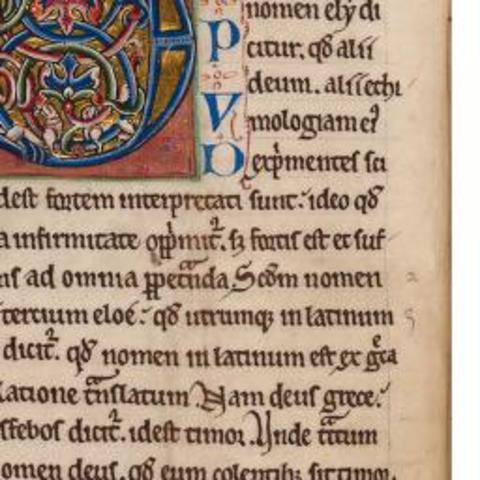 nomen ely di
P citur. qđ alii
deum. alii echi
V mologiam ei᷒
D exp̄mentes ſci
dest fortem interpretati sunt. ideo qđ
a infirmitate opp̄mit᷑. sꝫ fortis est et suf
ns ad omnia ꝑpetᷓnda. Scđm nomen
tercium eloé. qđ utrumqꝫ in latinum
dicit᷑. qđ nomen in latinum est ex gͤca
latione tᷓnslatum. Nam deus grece.
febos dicit᷑. idest timor. Unde tᷓctum
omen deus. qđ eum colentibꝫ sit timor.